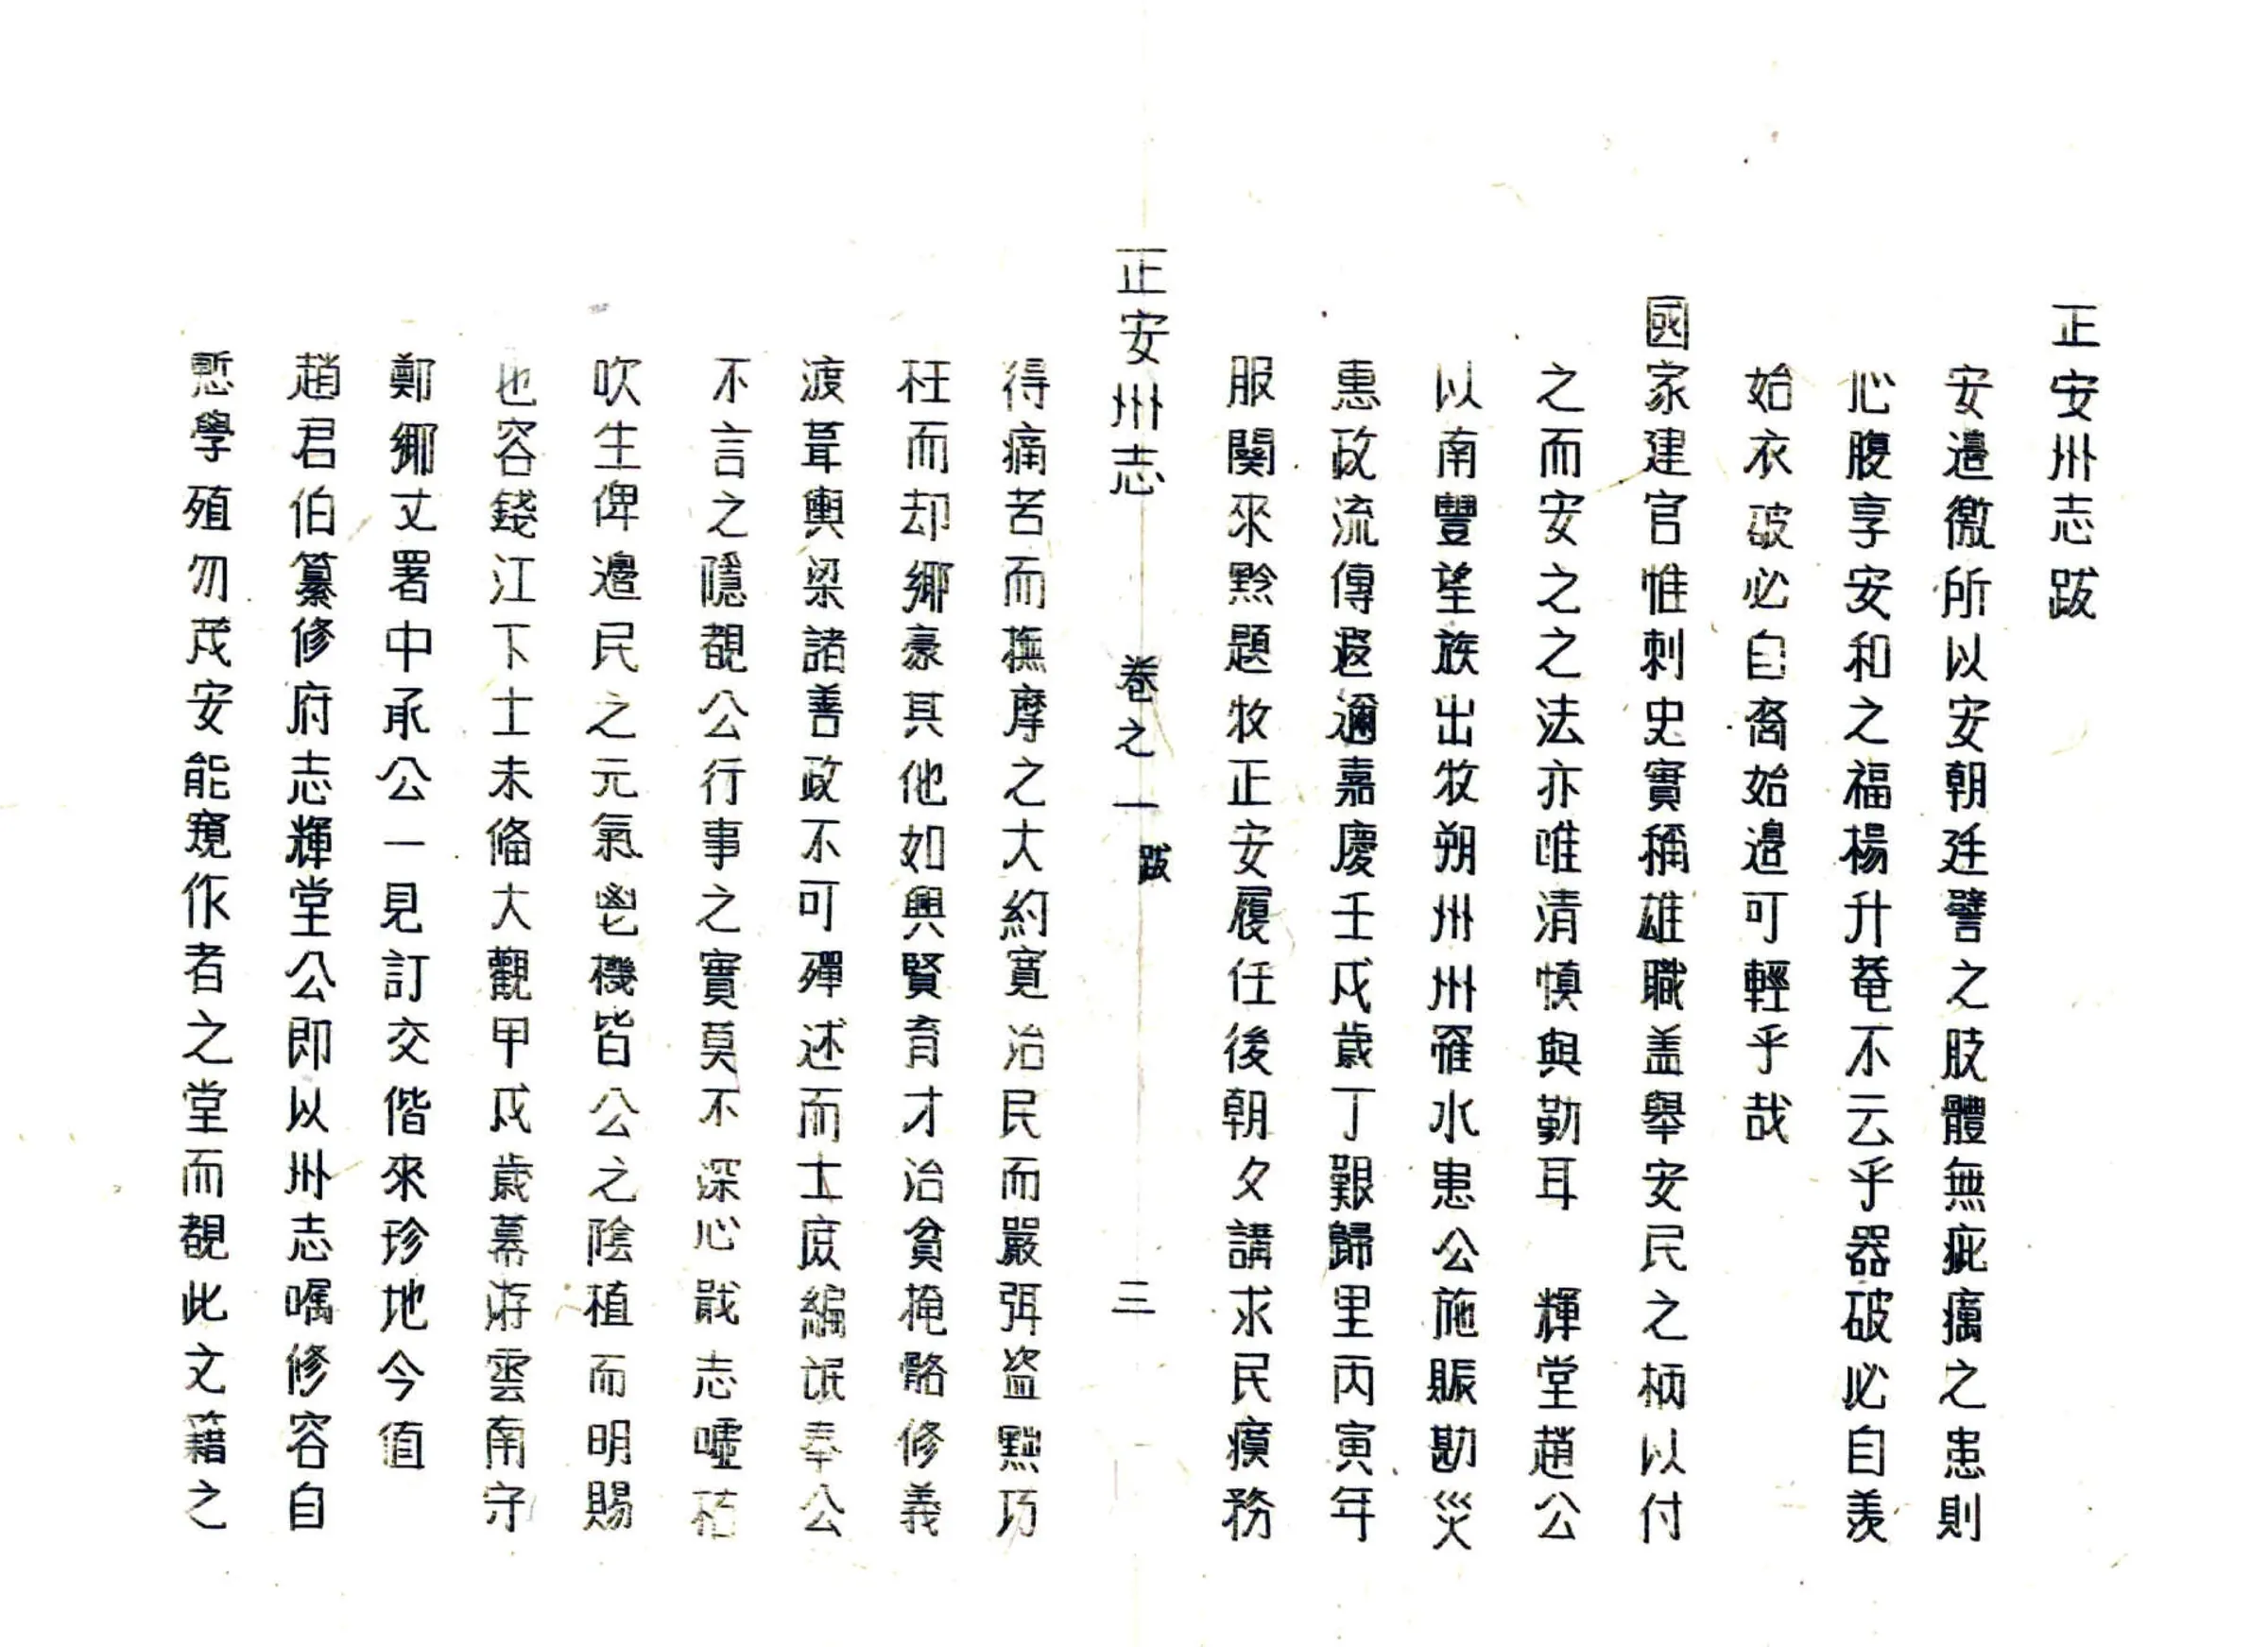 正安州志跋
安邉徼所以安朝廷譬之肢體無疵癘之患則
心腹享安和之福楊升菴不云乎器破必自羨
始衣破必自裔始邉可輕乎哉
國家建官惟刺史實稱雄職盖舉安民之柄以付
之而安之之法亦唯清慎與勤耳　輝堂趙公
以南豐望族出牧朔州州罹水患公施賑勘災
惠政流傳遐邇嘉慶壬戌歲丁艱歸里丙寅年
服闋來黔題牧正安履任後朝夕講求民瘼務
正安州志　卷之一　跋　三
得痛苦而撫摩之大約寛治民而嚴弭盗黜巧
枉而却鄉豪其他如興賢育才治貧掩骼修義
渡葺輿梁諸善政不可殫述而士庶編氓奉公
不言之隱覩公行事之實莫不深心戢志噓枯
吹生俾邉民之元氣鬯機皆公之陰植而明賜
也容錢江下士未脩大觀甲戌歲幕游雲南守
鄭鄉丈署中承公一見訂交偕來珍地今值
趙君伯纂修府志輝堂公即以州志嘱修容自
慙學殖勿茂安能窺作者之堂而覩此文籍之